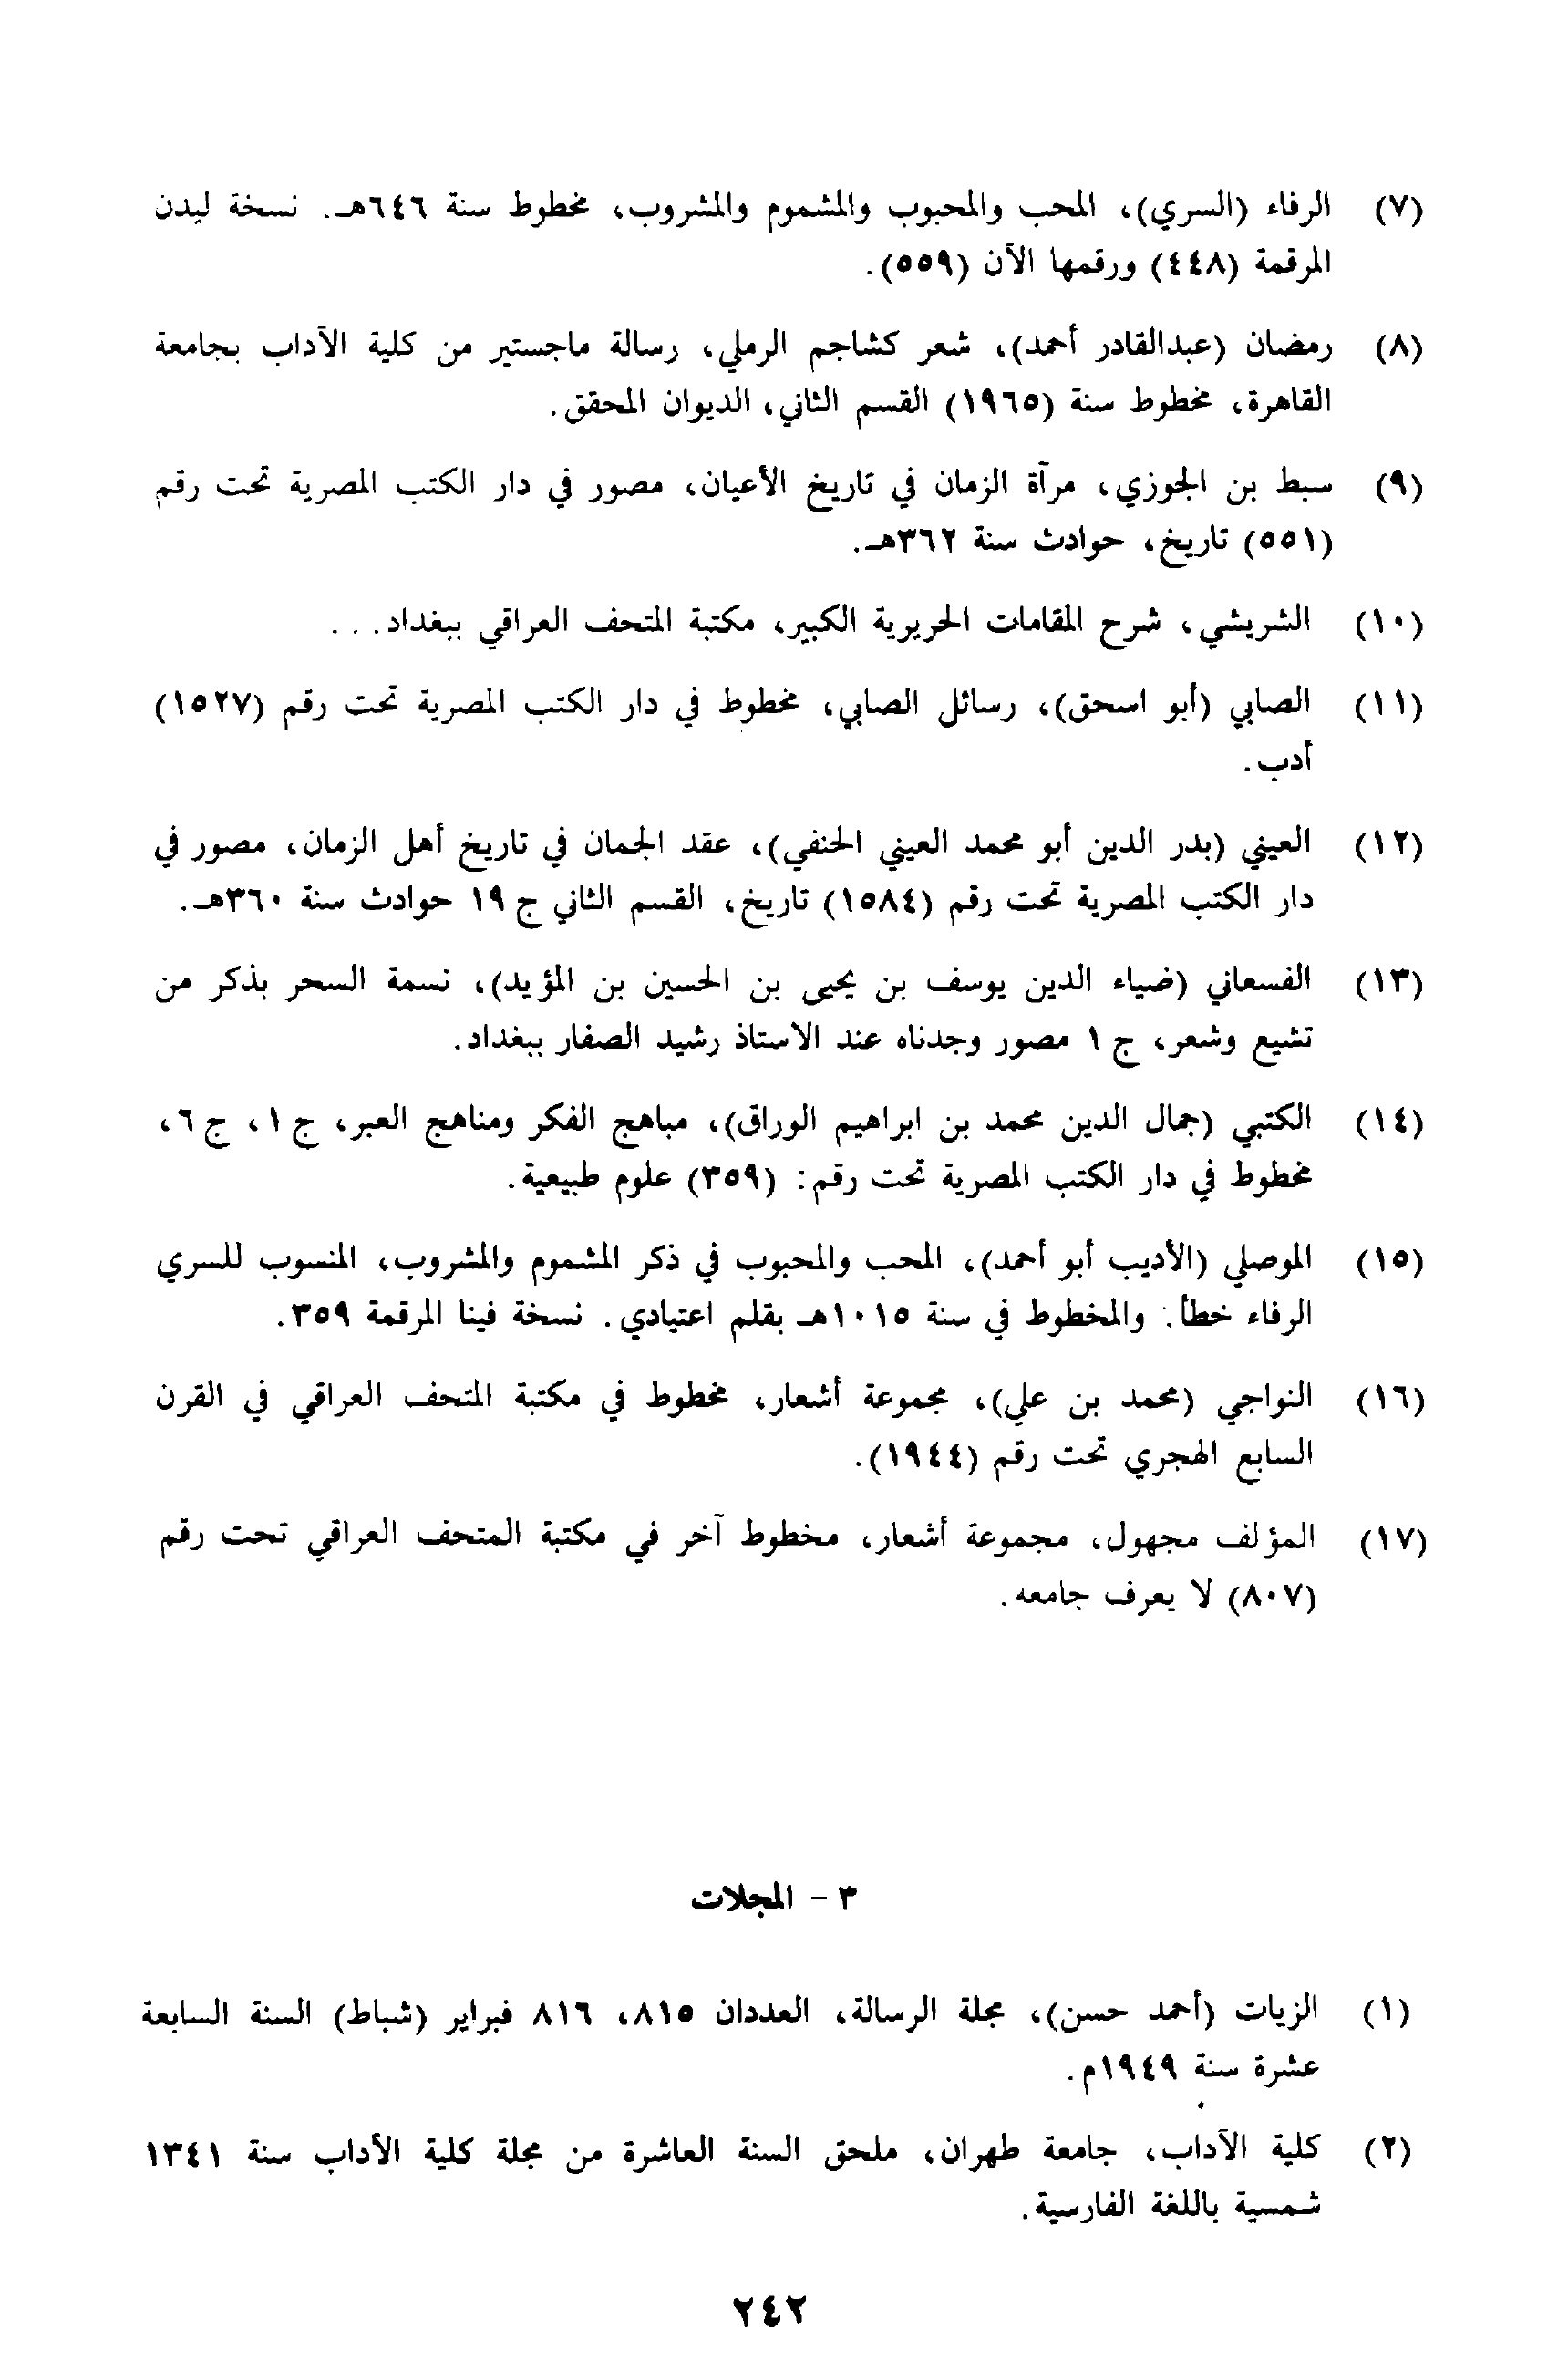 (٧) الرفاء (السري)، المحب والمحبوب والمشموم والمشروب، مخطوط سنة ٦٤٦هـ. نسخة ليدن
المرقمة (٤٤٨) ورقمها الآن (٥٥٩).
(٨) رمضان (عبدالقادر أحمد)، شعر كشاجم الرملي، رسالة ماجستير من كلية الآداب بجامعة
القاهرة، مخطوط سنة (١٩٦٥) القسم الثاني، الديوان المحقق.
(٩) سبط بن الجوزي، مرآة الزمان في تاريخ الأعيان، مصور في دار الكتب المصرية تحت رقم
(٥٥١) تاريخ، حوادث سنة ٣٦٢هـ.
(١٠) الشريشي، شرح المقامات الحريرية الكبير، مكتبة المتحف العراقي ببغداد...
(١١) الصابي (أبو اسحق)، رسائل الصابي، مخطوط في دار الكتب المصرية تحت رقم (١٥٢٧)
أدب.
(١٢) العيني (بدر الدين أبو محمد العيني الحنفي)، عقد الجمان في تاريخ أهل الزمان، مصور في
دار الكتب المصرية تحت رقم (١٥٨٤) تاريخ، القسم الثاني ج ١٩ حوادث سنة ٣٦٠هـ.
(١٣) الفسعاني (ضياء الدين يوسف بن يحيى بن الحسين بن المؤيد)، نسمة السحر بذكر من
تشيع وشعر، ج ١ مصور وجدناه عند الاستاذ رشيد الصفار ببغداد.
(١٤) الكتبي (جمال الدين محمد بن ابراهيم الوراق)، مباهج الفكر ومناهج العبر، ج ١، ج ٦،
مخطوط في دار الكتب المصرية تحت رقم: (٣٥٩) علوم طبيعية.
(١٥) الموصلي (الأديب أبو أحمد)، المحب والمحبوب في ذكر المشموم والمشروب، المنسوب للسري
الرفاء خطأ. والمخطوط في سنة ١٠١٥هـ بقلم اعتيادي. نسخة فينا المرقمة ٣٥٩.
(١٦) النواجي (محمد بن علي)، مجموعة أشعار، مخطوط في مكتبة المتحف العراقي في القرن
السابع الهجري تحت رقم (١٩٤٤).
(١٧) المؤلف مجهول، مجموعة أشعار، مخطوط آخر في مكتبة المتحف العراقي تحت رقم
(٨٠٧) لا يعرف جامعه.
٣ - المجلات
(١) الزيات (أحمد حسن)، مجلة الرسالة، العددان ٨١٥، ٨١٦ فبراير (شباط) السنة السابعة
عشرة سنة ١٩٤٩م.
(٢) كلية الآداب، جامعة طهران، ملحق السنة العاشرة من مجلة كلية الأداب سنة ١٣٤١
شمسية باللغة الفارسية.
٢٤٢